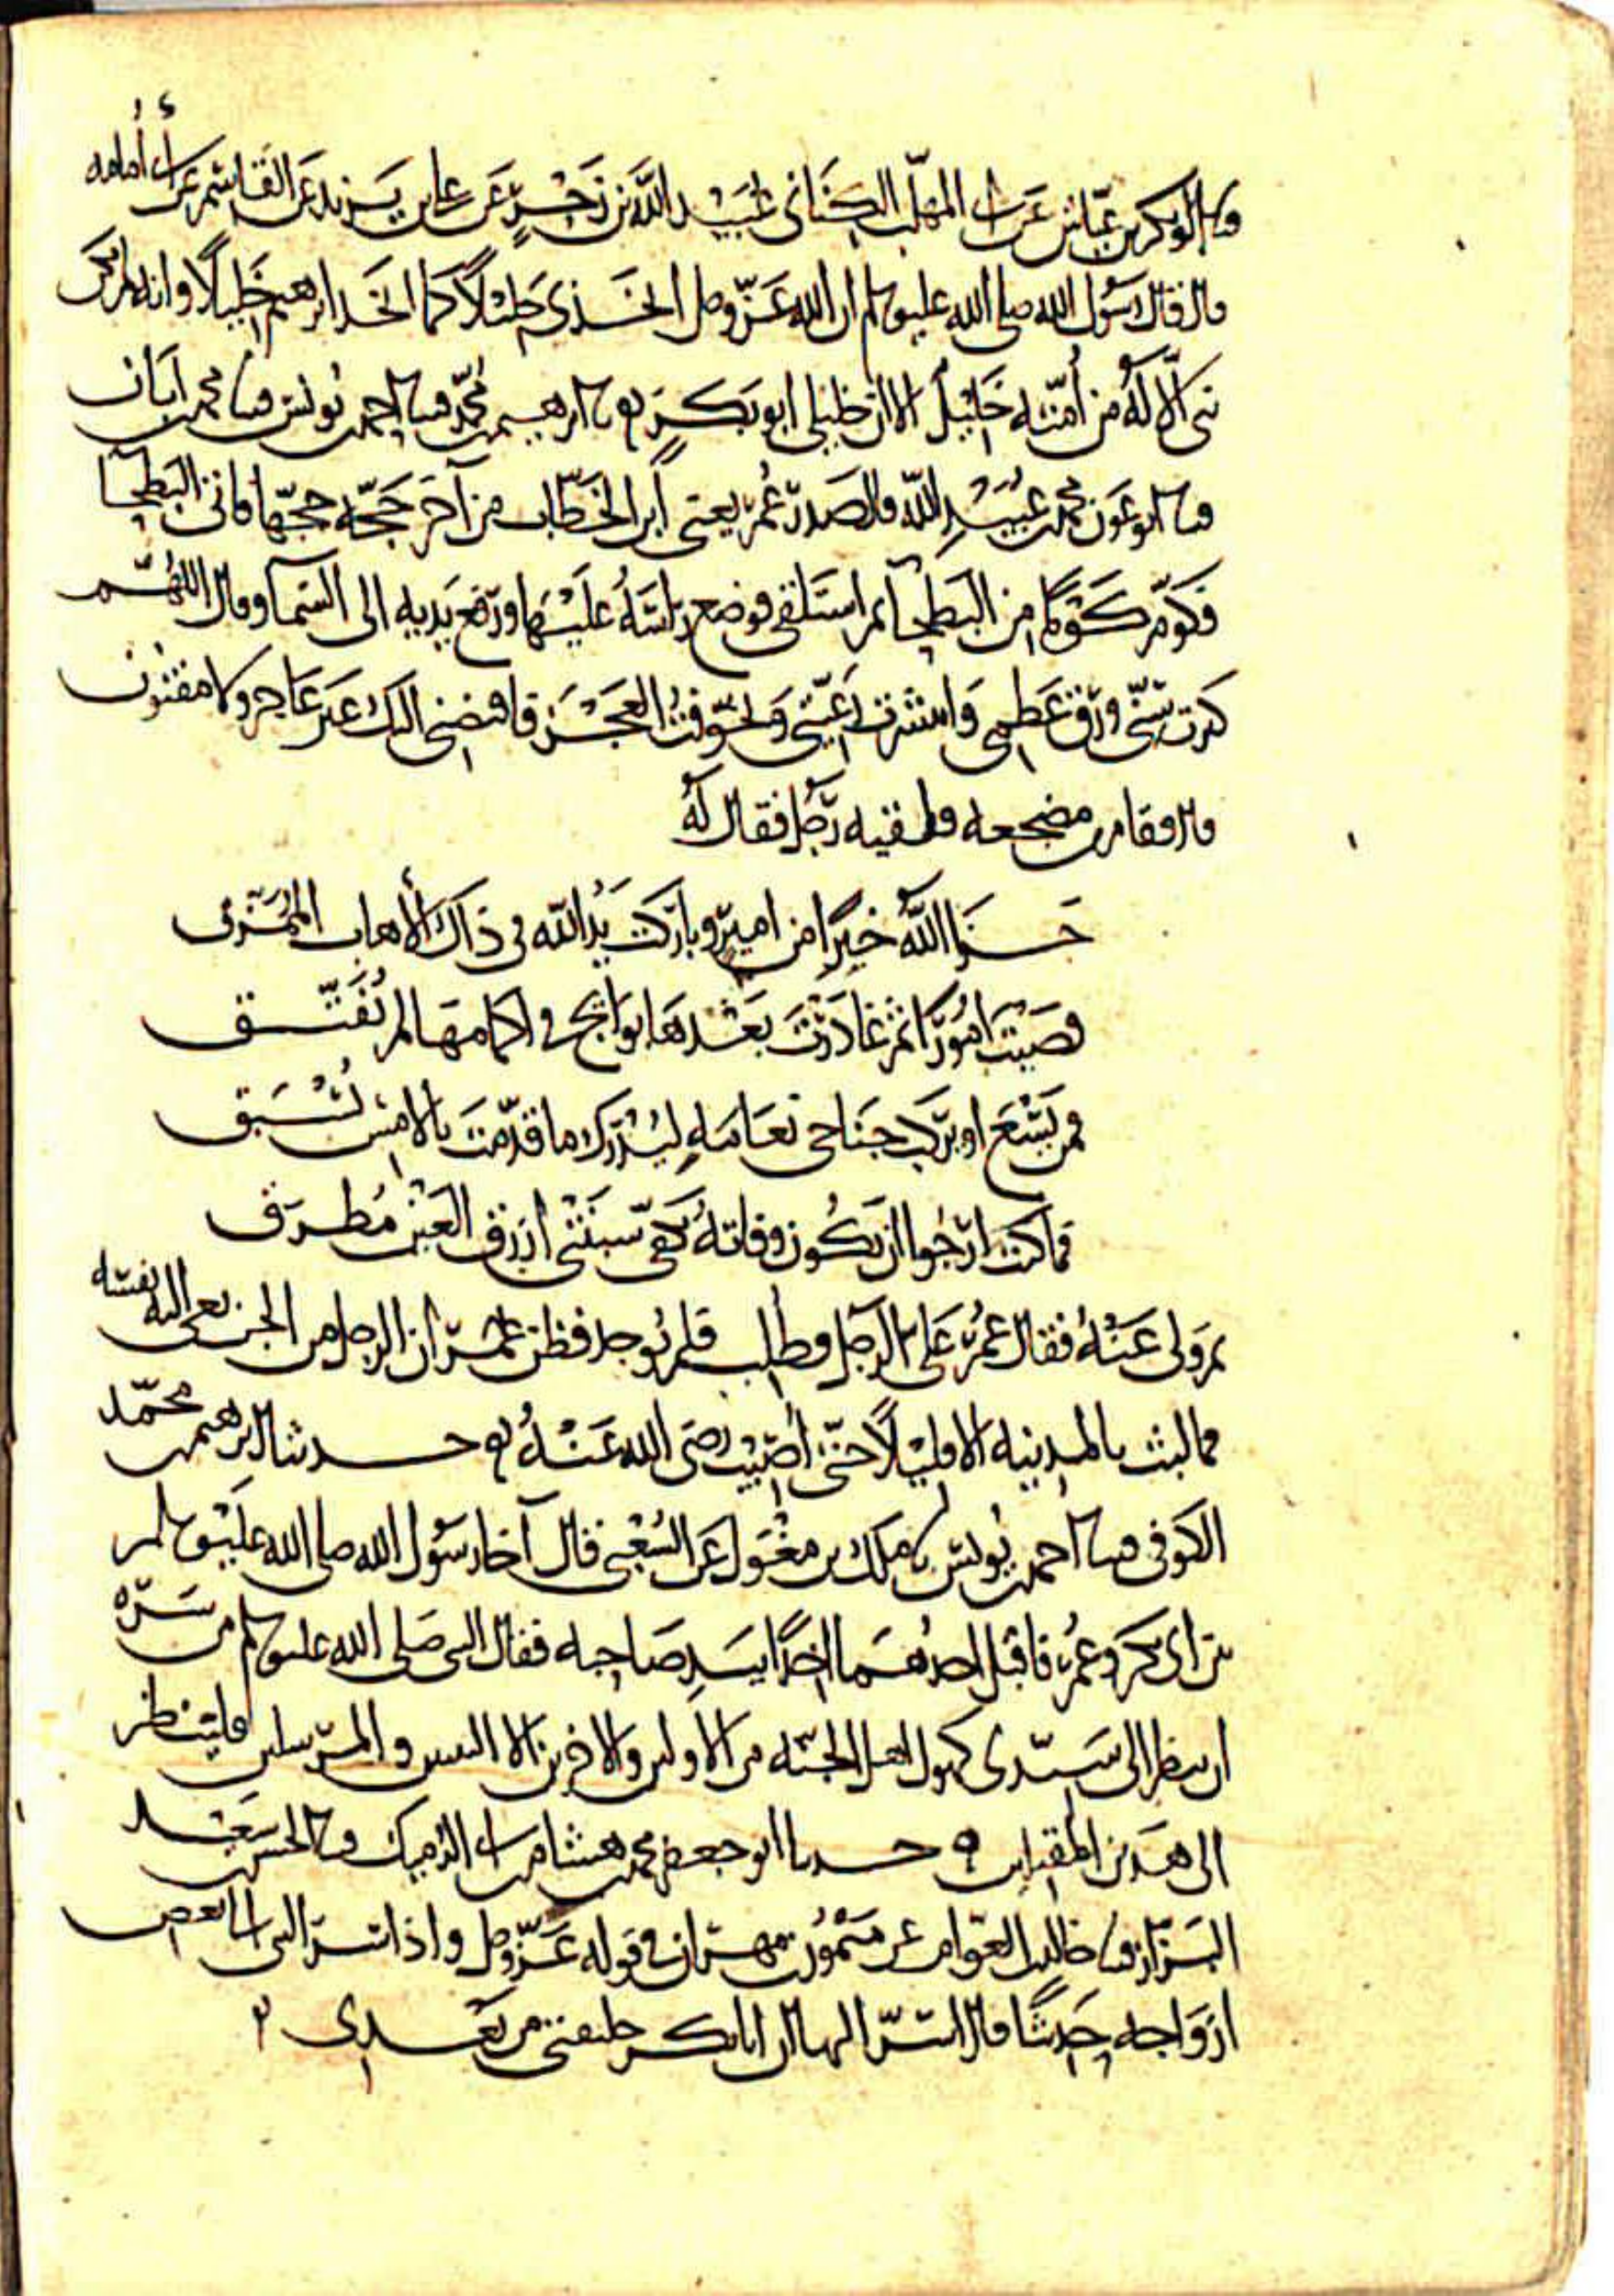 ثنا ابو بكر بن عياش عن ابي المهلب الكناني عن عبيد الله بن زحر عن علي بن يزيد عن القاسم عن ابي أمامه
قال قال رسول الله صلى الله عليه وسلم ان الله عز وجل اتخذني خليلا كما اتخذ ابرهيم خليلا وانه لم يكن
نبي الا له من أمته خليل الا ان خليلي ابو بكر ثنا ابرهيم بن محمد ثنا احمد بن يونس ثنا محمد بن أبان
ثنا ابو عون محمد بن عبيد الله قال صدر عمر يعني ابن الخطاب من آخر حجه حجها فاتى البطحا
فكوم كوما من البطحا ثم استلقى فوضع راسه عليها ورفع يديه الى السما وقال اللهم
كبرت سني ورق عظمي وانتشرت رعيتي وتخوفت العجز فاقبضني اليك غير عاجز ولا مفتون
قال فقام من مضجعه فلقيه رجل فقال له
جزا الله خيرا من امير وباركت يد الله في ذاك الأهاب الممزق
قضيت امورا ثم غادرت بعدها بوايج في اكمامها لم تفتق
فمن يسع او يركب جناحي نعامه ليدرك ما قدمت بالامس يسبق
فما كنت ارجوا ان يكون وفاته بكفي سبنتى ازرق العين مطرق
ثم ولى عنه فقال عمر علي بالرجل فطلب فلم يوجد فظن عمر ان الرجل من الجن نعى اليه نفسه
فما لبث بالمدينه الا قليلا حتى أصيب رضي الله عنه حدثنا ابرهيم بن محمد
الكوفي ثنا احمد بن يونس ثنا ملك بن مغول عن الشعبي قال آخا رسول الله صلى الله عليه وسلم
بين ابي بكر وعمر فاقبل احدهما اخذا بيد صاحبه فقال النبي صلى الله عليه وسلم من سره
ان ينظر الى سيدي كهول اهل الجنه من الاولين والاخرين الا النبيين والمرسلين فلينظر
الى هذين المقبلين حدثنا ابو جعفر محمد بن هشام بن ابي الدميك ثنا الحسن بن سعيد
البزاز ثنا خالد بن العوام عن ميمون بن مهران في قوله عز وجل واذ اسر النبي الى بعض
ازواجه حديثا قال اسر اليها ان ابا بكر خليفتي من بعدي